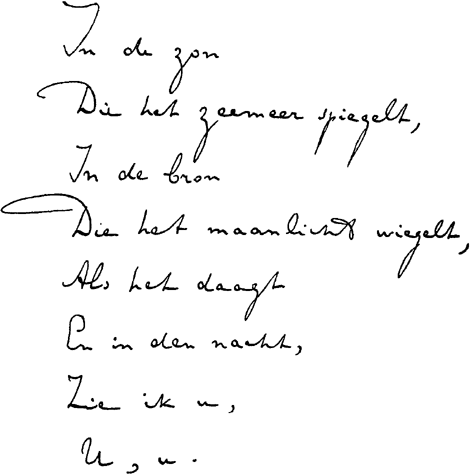 In de zon
Die het zeemeer spiegelt,
In de bron
Die het maanlicht wiegelt,
Als het daagt
En in den nacht,
Zie ik u,
U, u.